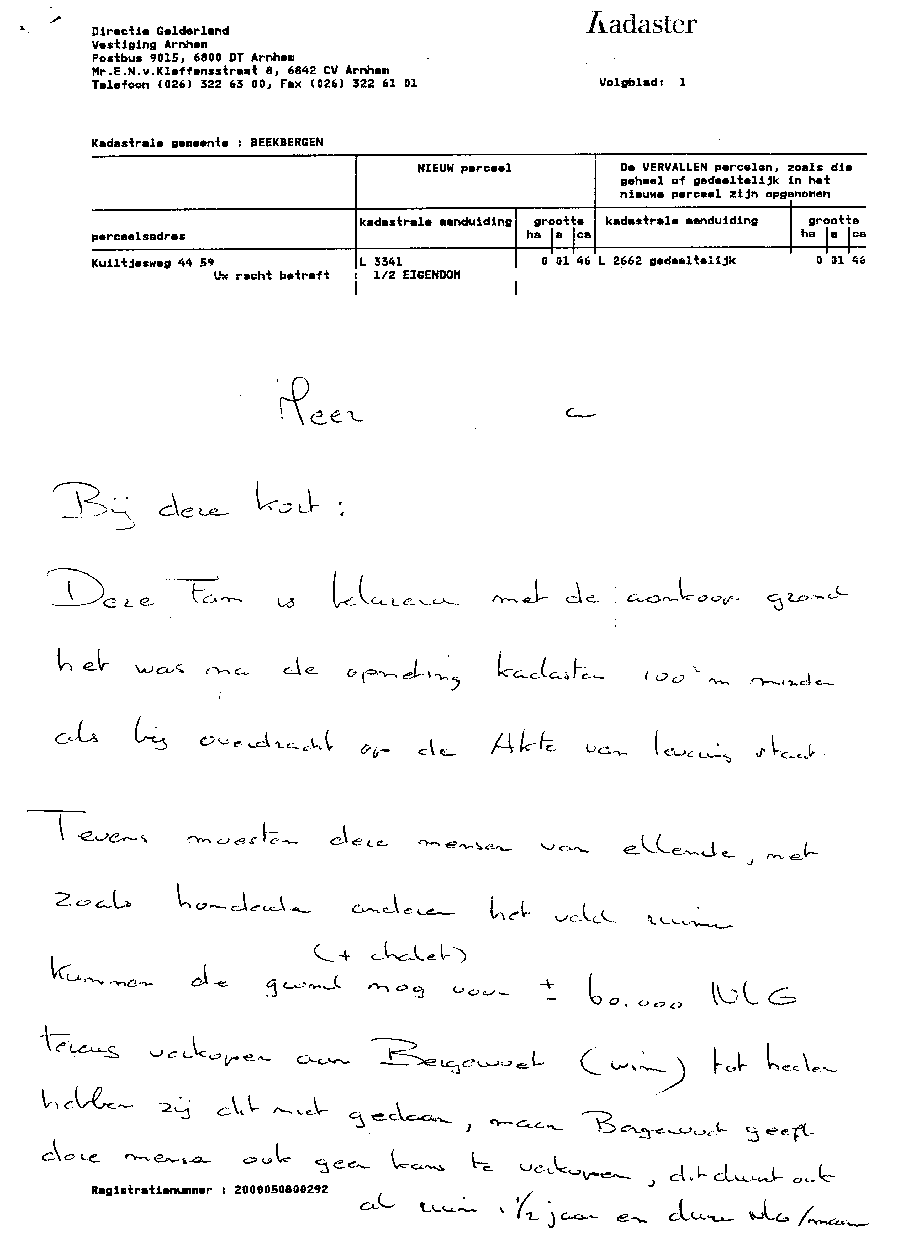 Kadaster
Directie Gelderland
Vestiging Arnhem
Postbus 9015, 6800 DT Arnhem
Mr.E.N.v.Kleffensstraat 8, 6842 CV Arnhem
Telefoon (026) 322 63 00, Fax (026) 322 61 01
Volgblad: 1
Kadastrale gemeente : BEEKBERGEN
NIEUW perceel
De VERVALLEN percelen, zoals die
geheel of gedeeltelijk in het
nieuwe perceel zijn opgenomen
perceelsadres
kadastrale aanduiding grootte kadastrale aanduiding grootte
ha a ca ha a ca
Kuiltjesweg 44 59 L 3341 0 01 46 L 2662 gedeeltelijk 0 01 46
Uw recht betreft : 1/2 EIGENDOM
Heer
Bij deze kort :
Deze Fam is met de aankoop grond
het was na de opmeting kadaster 100 m minder
als bij overdracht op de Akte van levering staat.
Tevens moesten deze mensen van ellende, net
zoals honderden anderen het veld ruimen
(+ chalet)
kunnen de grond nog voor ± 60.000 NLG
terug verkopen aan Bergewoet (wim) tot heden
hebben zij dit niet gedaan, maar Bergewoet geeft
deze mensen ook geen kans te verkopen, dit duurt ook
Registratienummer : 2000050800292
al ruim 1 1/2 jaar en deze